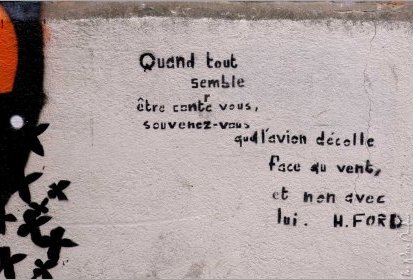 Quand tout
semble
être contre vous,
souvenez-vous
que l'avion décolle
face au vent,
et non avec
lui. H. FORD